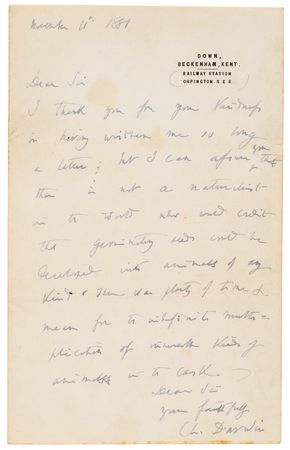 November 11th 1881
DOWN,
BECKENHAM, KENT.
RAILWAY STATION
ORPINGTON. S.E.R.
Dear Sir
I thank you for your kindness
in having written me so long
a letter; but I can assure you that
there is not a naturalist
in the world who would credit
that germinating seeds could be
developed into animals of any
kind & there was plenty of time &
means for the infinite multi-
plication of innumerable kinds of
animals in the cask.
Dear Sir
yours faithfully
Ch. Darwin